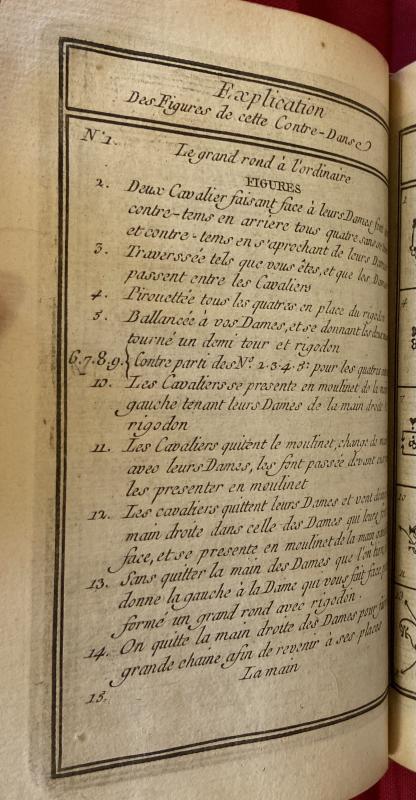 Explication
Des Figures de cette Contre-Danse
N.º 1. Le grand rond à l'ordinaire
FIGURES
2. Deux Cavalier faisant face à leurs Dames font
contre-tems en arriere tous quatre sans se
et contre-tems en s'aprochant de leurs Dames
3. Traverssée tels que vous êtes, et que les Dames
passent entre les Cavaliers
4. Pirouettée tous les quatres en place du rigodon
5. Ballancée à vos Dames, et se donnant les deux
tourné un demi tour et rigodon
6.7.8.9. { Contre parti des Nº. 2.3.4.5. pour les quatre
10. Les Cavaliers se presente en moulinet de la main
gauche tenant leurs Dames de la main droite
rigodon
11. Les Cavaliers quitent le moulinet, change de
avec leurs Dames, les font passée devant
les presenter en moulinet
12. Les cavaliers quittent leurs Dames et vont
main droite dans celle des Dames qui leurs
face, et se presente en moulinet de la main
13. Sans quitter la main des Dames que l'on
donne la gauche à la Dame qui vous fait face
formé un grand rond avec rigodon.
14. On quitte la main droite des Dames pour
grande chaine afin de revenir à ses places
15. La main